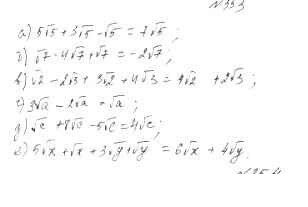 №353
а) 5√5 + 3√5 - √5 = 7√5 ;
б) √7 - 4√7 + √7 = -2√7 ;
в) √2 - 2√3 + 3√2 + 4√3 = 4√2 + 2√3 ;
г) 3√a - 2√a = √a ;
д) √c + 8√c - 5√c = 4√c ;
е) 5√x + √x + 3√y + √y = 6√x + 4√y.